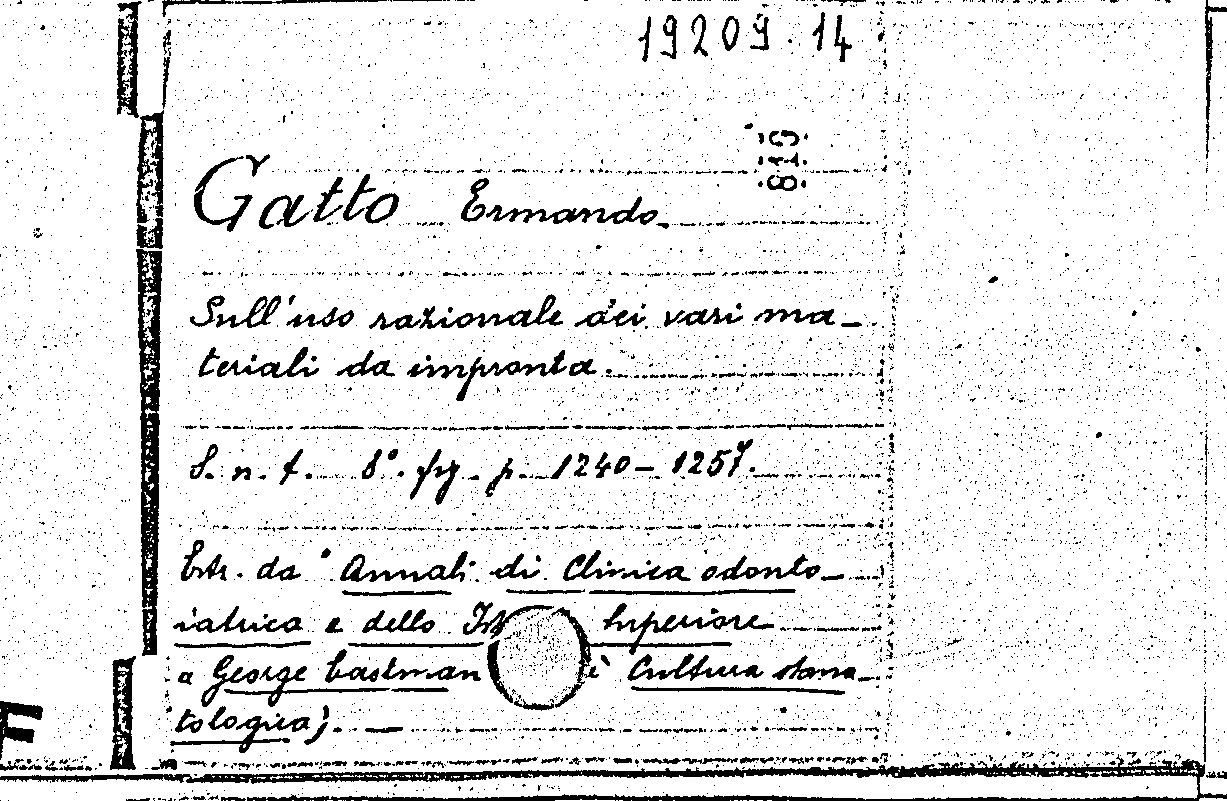 19209.14
819
Gatto Ermando
Sull'uso razionale dei vari ma-
teriali da impronta.
S. n. t. 8°. fig. p. 1240-1257.
Estr. da "Annali di Clinica odonto-
iatrica e dello Superiore
George Eastman è Cultura stoma-
tologica).